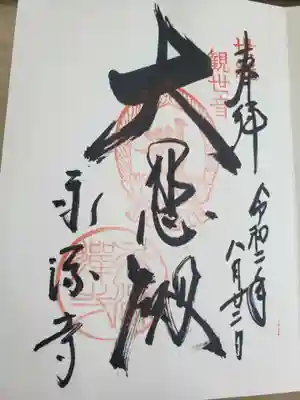 奉拝
令和二年
八月廿二日
世
観世音
大悲殿
永源寺